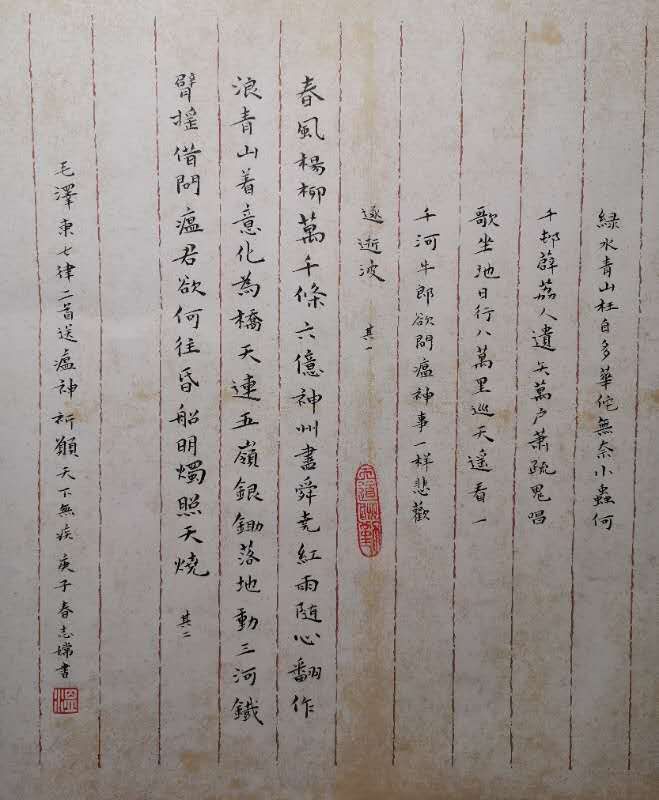 綠水青山枉自多華佗無奈小蟲何
千邨薜荔人遺矢萬户蕭疏鬼唱
歌坐地日行八萬里巡天遥看一
千河牛郎欲問瘟神事一样悲歡
逐逝波 其一
春風楊柳萬千條六億神州盡舜堯紅雨随心翻作
浪青山着意化為橋天連五嶺銀鋤落地動三河鐵
臂摇借問瘟君欲何往昏船明燭照天燒 其二
毛澤東七律二首送瘟神祈願天下無疾庚子春志嫦書